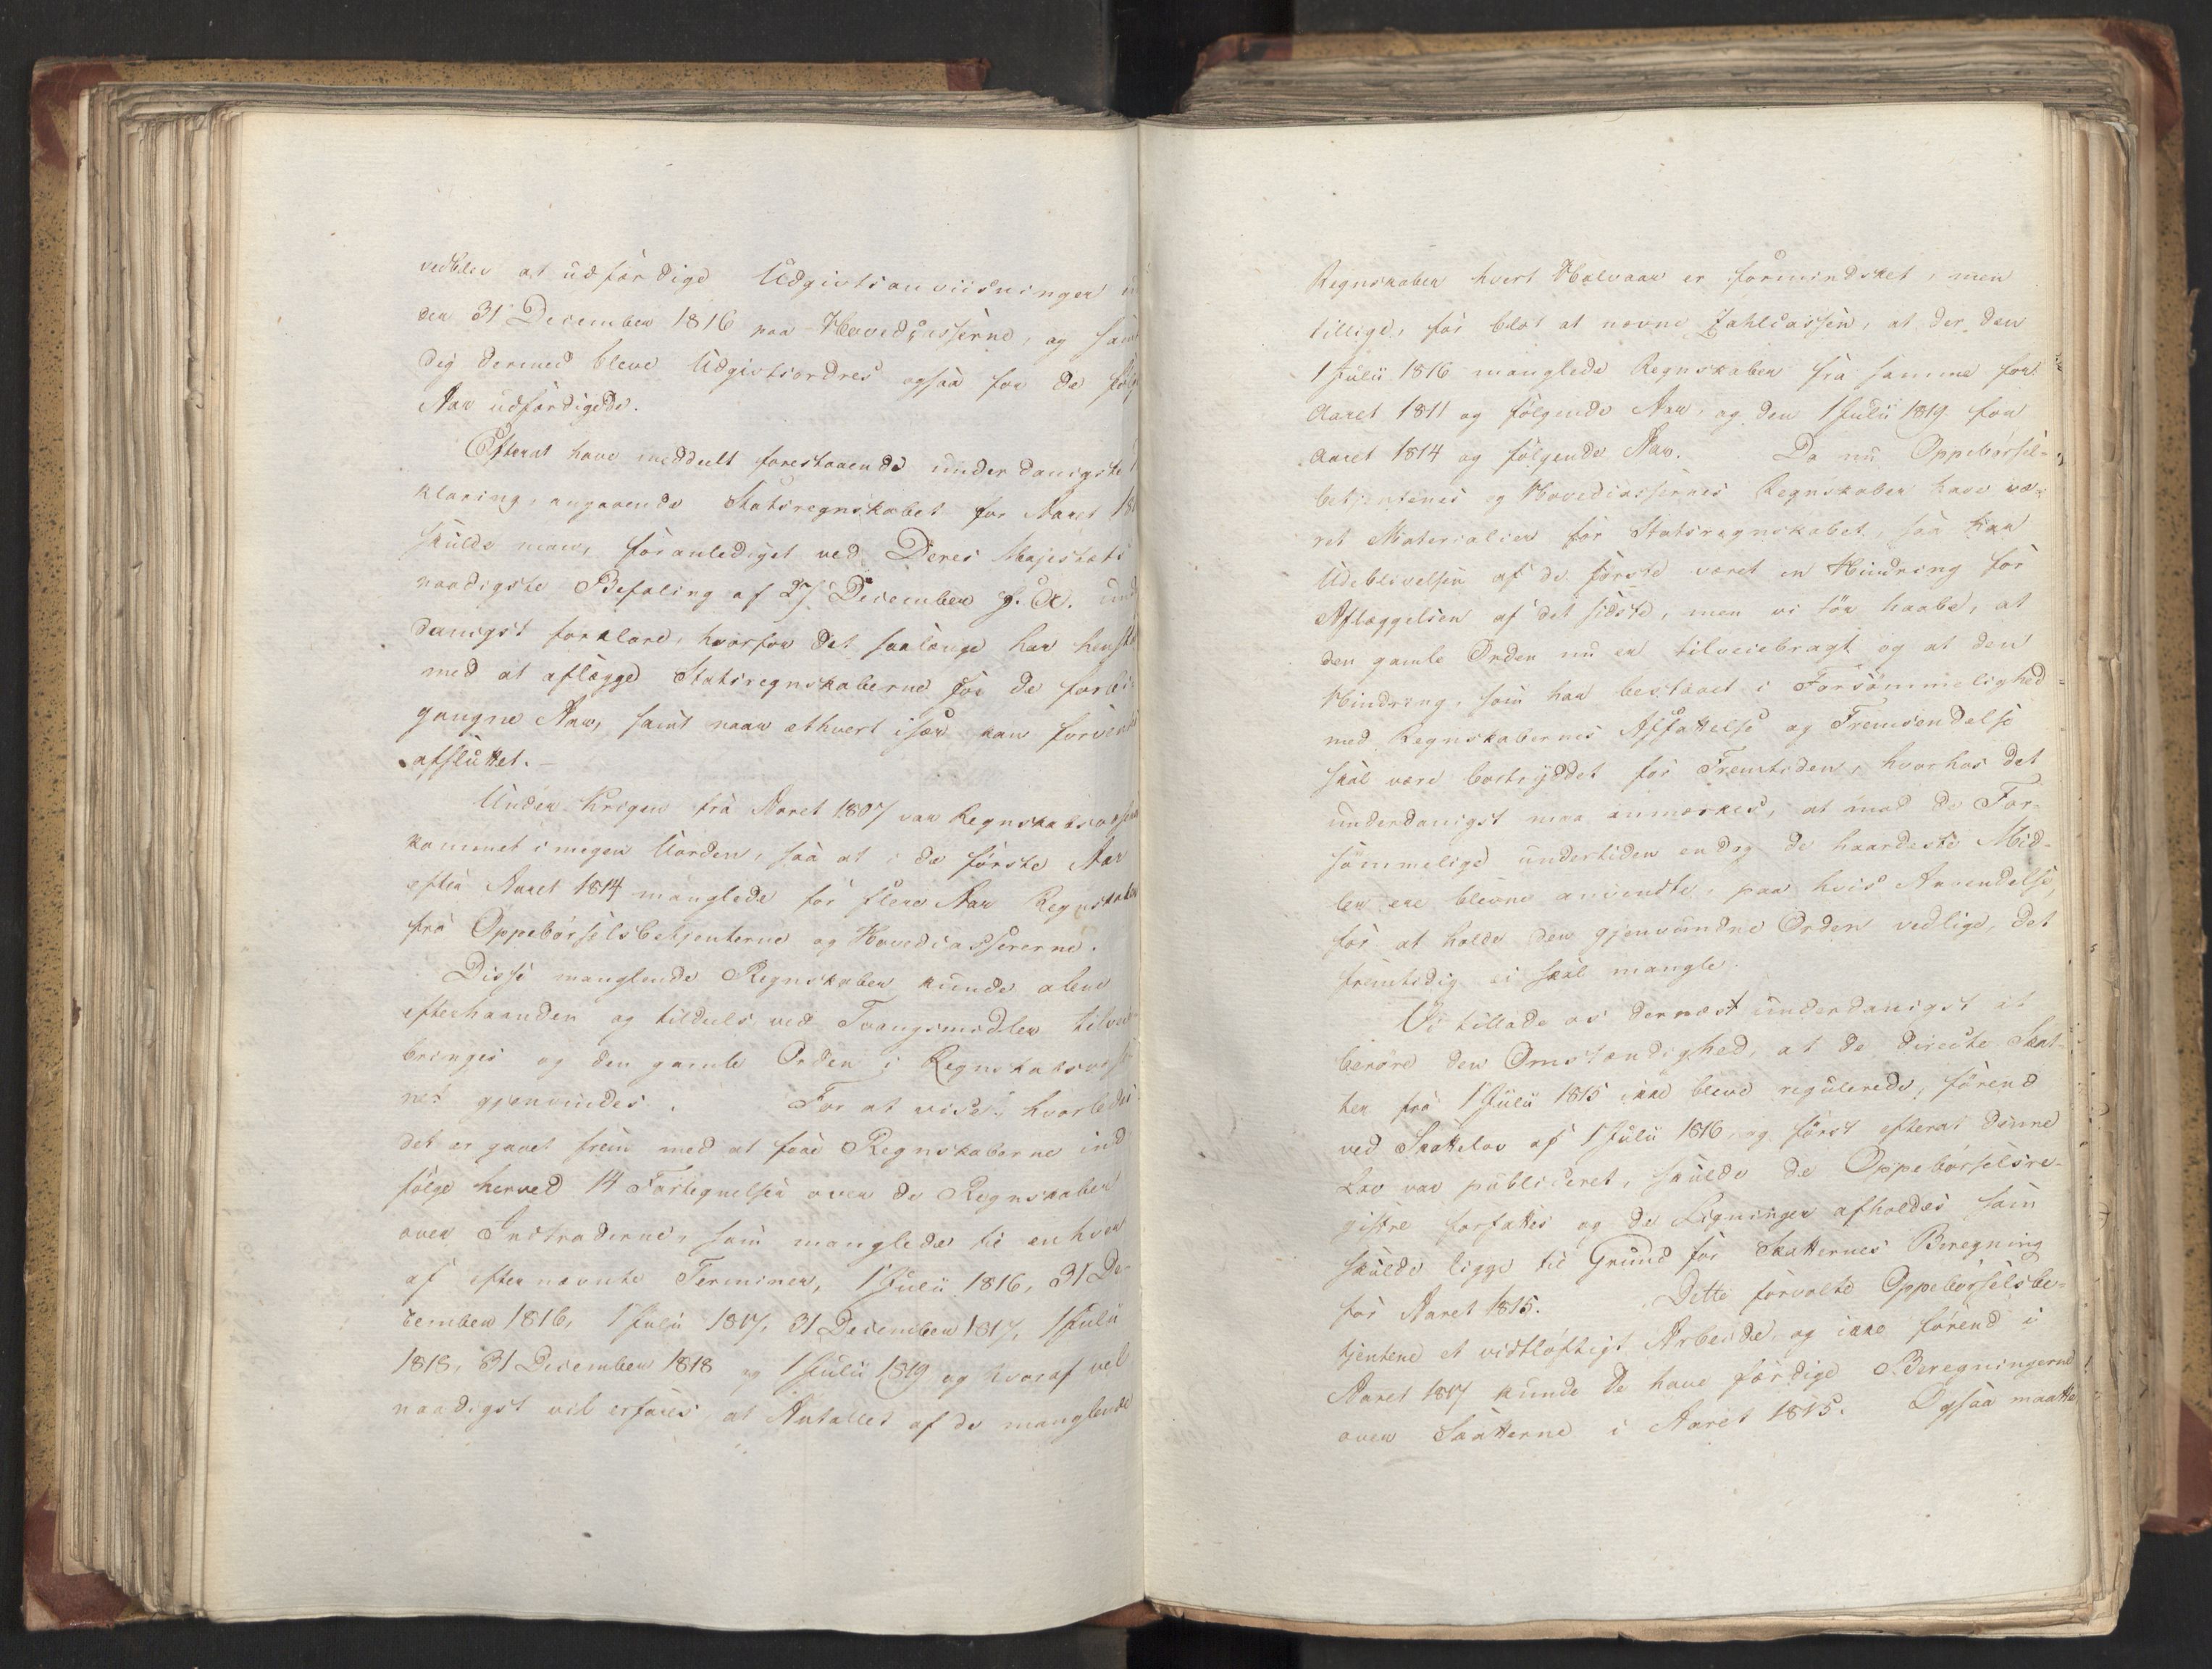 vedblev at udfærdige Udgivtsanviisninger
den 31 December 1816 paa Hovedcasserne, og sam
dig dermed bleve Udgivtsordres ogsaa for de følg
Aar udfærdigede.
Efterat have meddeelt forestaaende underdanigste
klaring, angaaende Statsregnskabet for Aaret 18
skulde man, foranlediget ved Deres Majestæts
naadigste Befaling af 27 December f. A. und
danigst forklare, hvorfor det saalænge har henst
med at aflægge Statsregnskaberne for de forbi-
gangne Aar, samt naar ethvert især kan forvent
afsluttet.-
Under Krigen fra Aaret 1807 var Regnskabsvæsen
kommet i megen Uorden, saa at i de første Aar
efter Aaret 1814 manglede for flere Aar Regnskaber
fra Oppebørselsbetjenterne og Hovedcassererne.
Disse manglende Regnskaber kunde alene
efterhaanden og tildeels ved Tvangsmidler tilvei-
bringes og den gamle Orden i Regnskabsvæse
net gjenvindes. For at vise, hvorledes
det er gaaet frem med at faae Regnskaberne ind
følge herved 14 Fortegnelser over de Regnskaber
over Indtraderne, som manglede til enhver
af efternævnte Terminer, 1 Julii 1816, 31 De-
cember 1816, 1 Julii 1817, 31 December 1817, 1 Julii
1818, 31 December 1818 og 1 Julii 1819 og hvoraf vel
naadigst vil erfares, at Antallet af de manglende
Regnskaber hvert Halvaar er formindsket, men
tillige, for blot at nævne Zahlcassen, at der den
1 Julii 1816 manglede Regnskaber fra samme for
Aaret 1811 og følgende Aar, og den 1 Julii 1819 for
Aaret 1814 og følgende Aar. Da nu Oppebørsels-
betjentenes og Hovedcassernes Regnskaber have væ-
ret Materialier for Statsregnskabet, saa har
Udeblivelsen af de første været en Hindring for
Aflæggelsen af det sidste, men vi tør haabe, at
den gamle Orden nu er tilveiebragt og at den
Hindring, som har bestaaet i Forsømmelighed
med Regnskabernes Affattelse og Fremsendelse
skal være bortryddet for Fremtiden, hvorhos det
underdanigst maa anmærkes, at mod de For-
sømmelige undertiden endog de haardeste Mid-
ler ere blevne anvendte, paa hvis Anvendelse,
for at holde den gjenvundne Orden vedlige, det
fremtidig ei skal mangle.
Vi tillade os dernæst underdanigst at
berøre den Omstændighed, at de directe Skat-
ter fra 1 Julii 1815 ikke bleve regulerede, førend
ved Skattelov af 1 Julii 1816, og først efterat denne
Lov var publiceret, skulde de Oppebørselsre-
gistre forfattes og de Ligninger afholdes som
skulde ligge til Grund for Skatternes Beregning
for Aaret 1815. Dette forvoldte Oppebørselsbe-
tjentene et vidtløftigt Arbeide, og ikke førend i
Aaret 1817 kunde de have færdige Beregningerne
over Skatterne i Aaret 1815. Ogsaa maatte